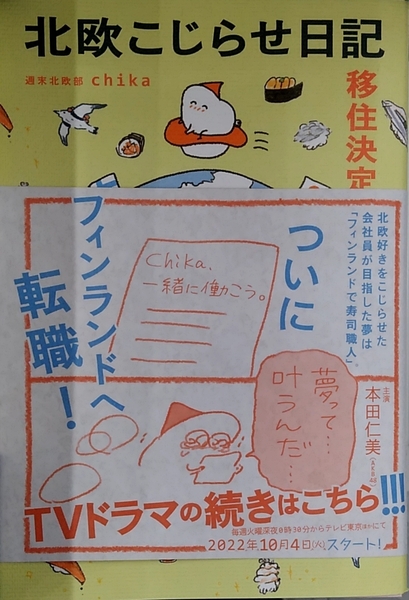 北欧こじらせ日記
週末北欧部 chika
移住決定
北欧好きをこじらせた
会社員が目指した夢は
「フィンランドで寿司職人」。
ついに
フィンランドへ
転職！
Chika、
一緒に働こう。
夢って…
叶うんだ…
主演
本田仁美（AKB48）
TVドラマの続きはこちら!!!
毎週火曜深夜0時30分からテレビ東京ほかにて
2022年10月4日(火)スタート!